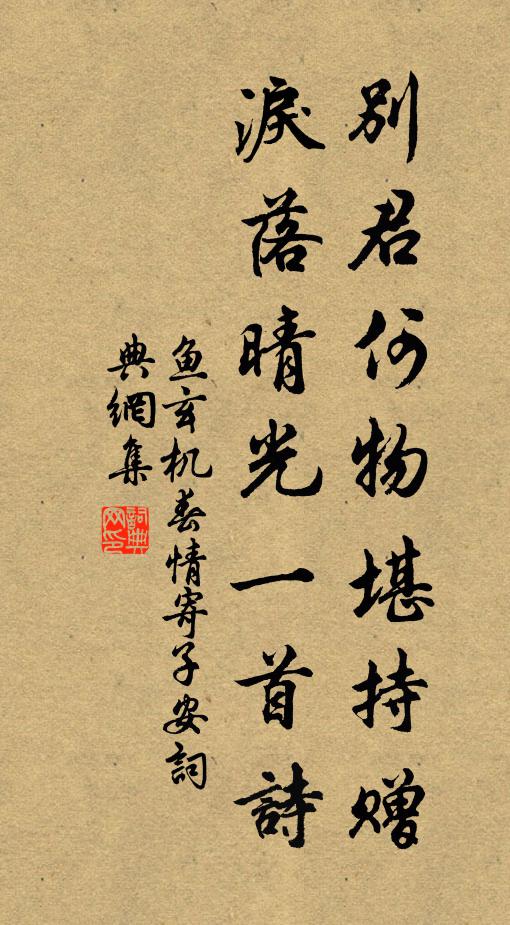 別君何物堪持贈
淚落晴光一首詩
鱼玄机春情寄子安詞
典網集
詞典網印